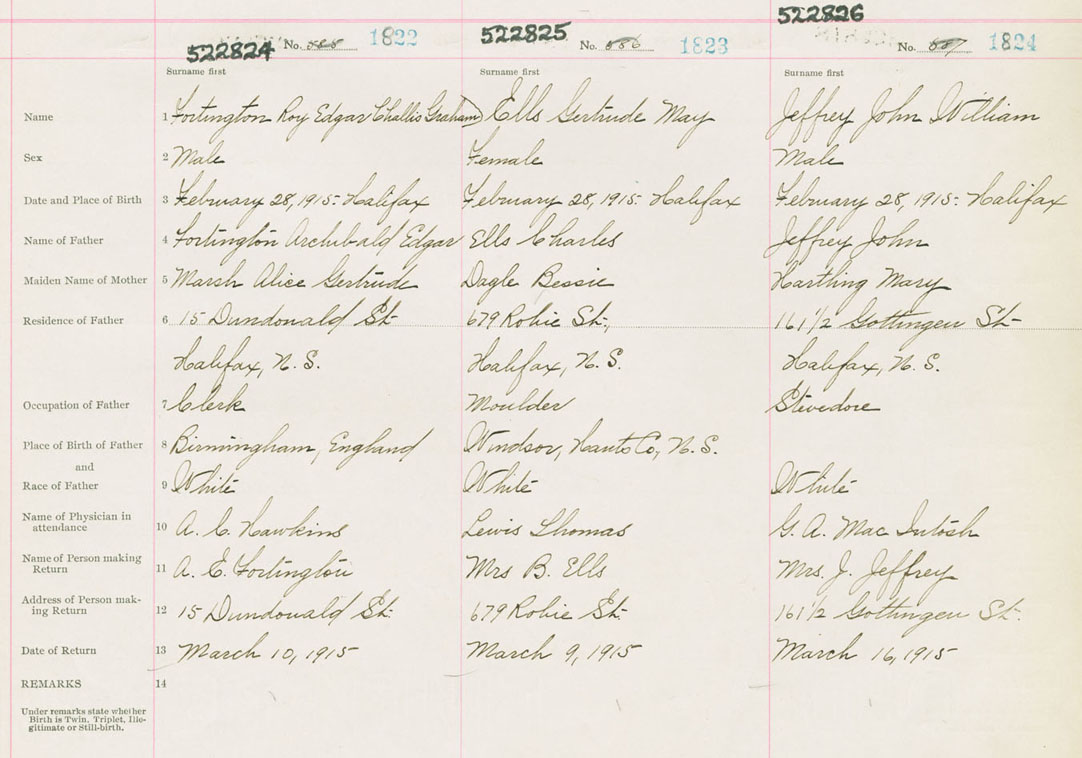 522826
522824 No. 585 1822 522825 No. 586 1823 No. 587 1824
Surname first Surname first Surname first
Name 1 Fortington Roy Edgar Challis Graham) Ells Gertrude May Jeffrey John William
Sex 2 Male Female Male
Date and Place of Birth 3 February 28, 1915- Halifax February 28, 1915- Halifax February 28, 1915- Halifax
Name of Father 4 Fortington Archibald Edgar Ells Charles Jeffrey John
Maiden Name of Mother 5 Marsh Alice Gertrude Dagle Bessie Hartling Mary
Residence of Father 6 15 Dundonald St. 679 Robie St., 161 1/2 Gottingen St-
Halifax, N. S. Halifax, N. S. Halifax, N. S.
Occupation of Father 7 Clerk Moulder Stevedore
Place of Birth of Father 8 Birmingham, England Windsor, Hants Co, N. S.
and
Race of Father 9 White White White
Name of Physician in
attendance 10 A. C. Hawkins Lewis Thomas G. A. Mac Intosh
Name of Person making
Return 11 A. E. Fortington Mrs B. Ells Mrs. J. Jeffrey
Address of Person mak-
ing Return 12 15 Dundonald St. 679 Robie St. 161 1/2 Gottingen St.
Date of Return 13 March 10, 1915 March 9, 1915 March 16, 1915
REMARKS 14
Under remarks state whether
Birth is Twin, Triplet, Ille-
gitimate or Still-birth.